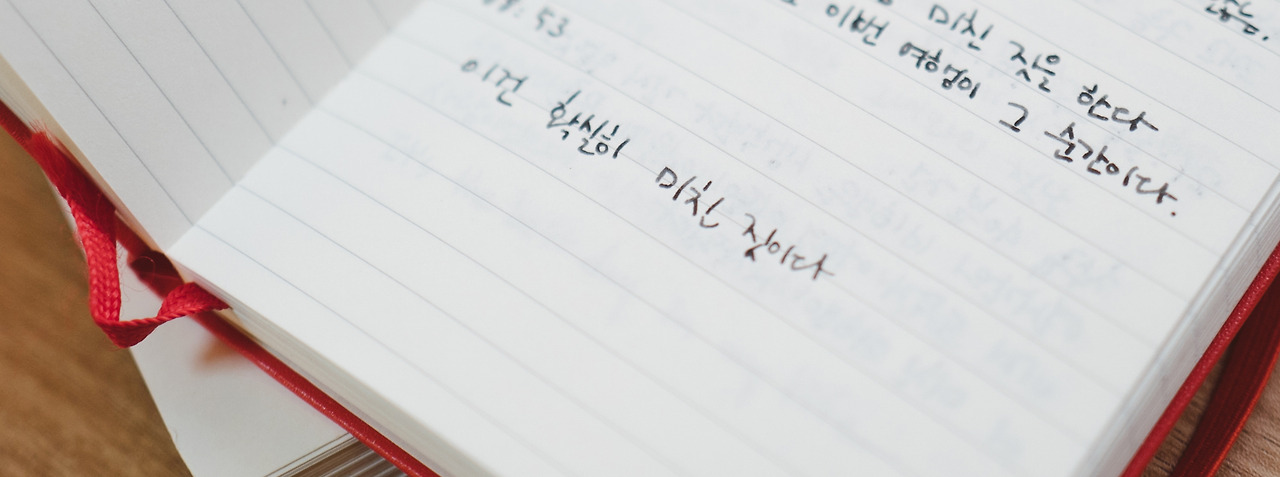 않는.
미친 짓을 한다
이번 여행이 그 순간이다.
53
이건 확실히 미친 짓이다